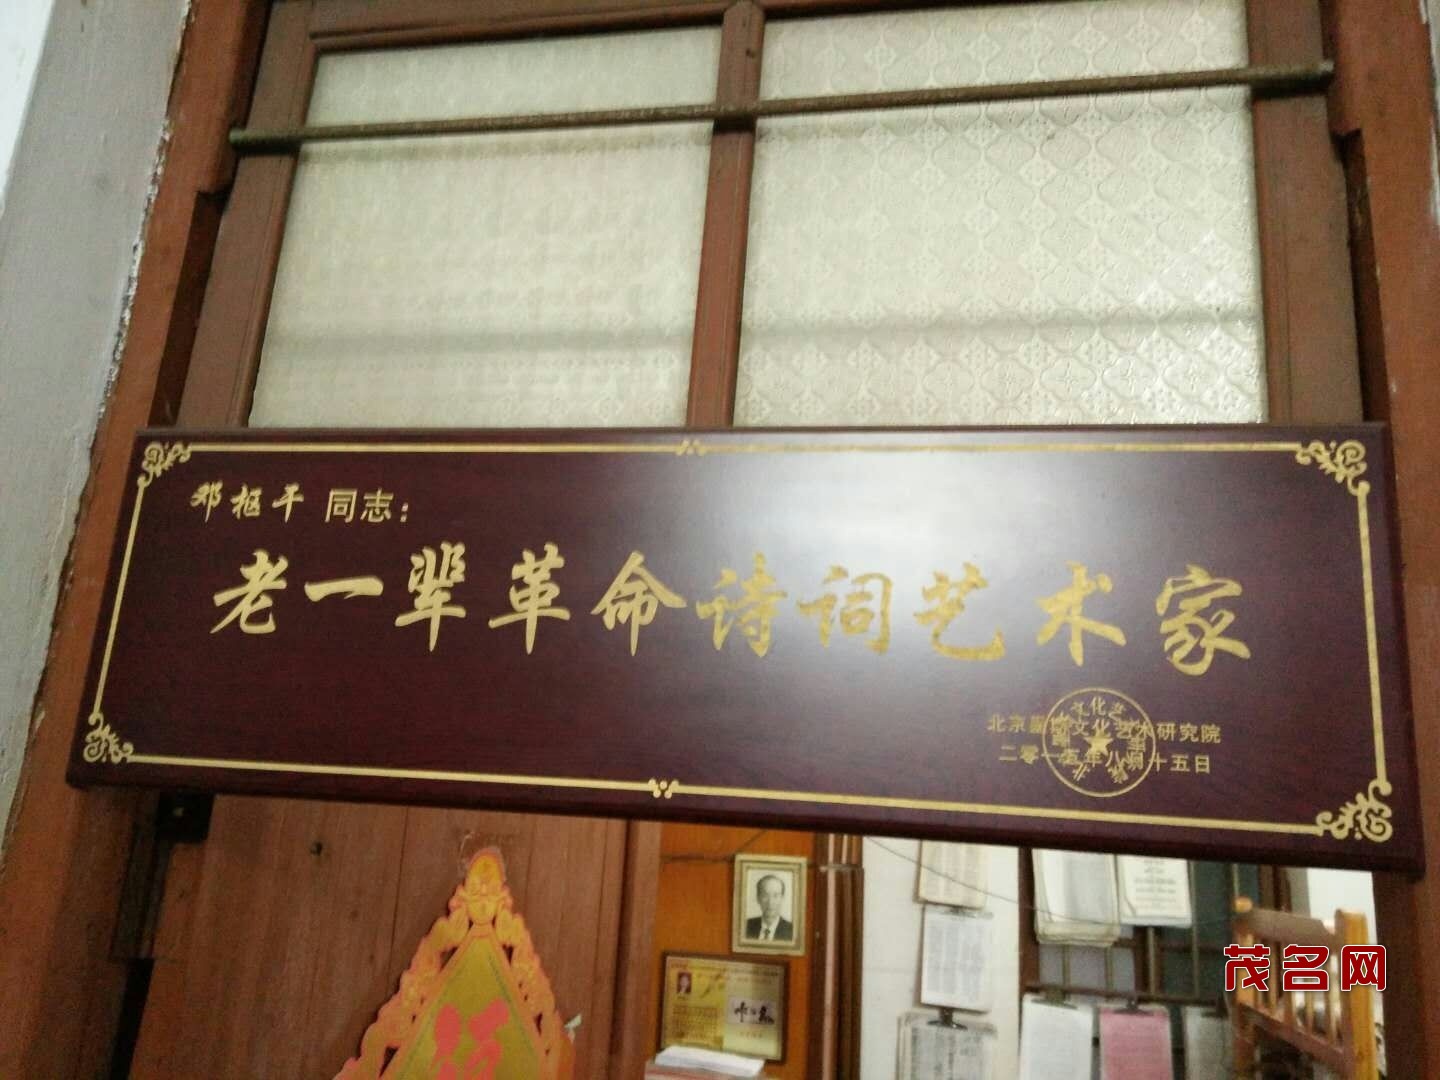 邓枢平 同志:
老一辈革命诗词艺术家
北京 文化艺术研究院
二零一五年八月十五日
茂名网